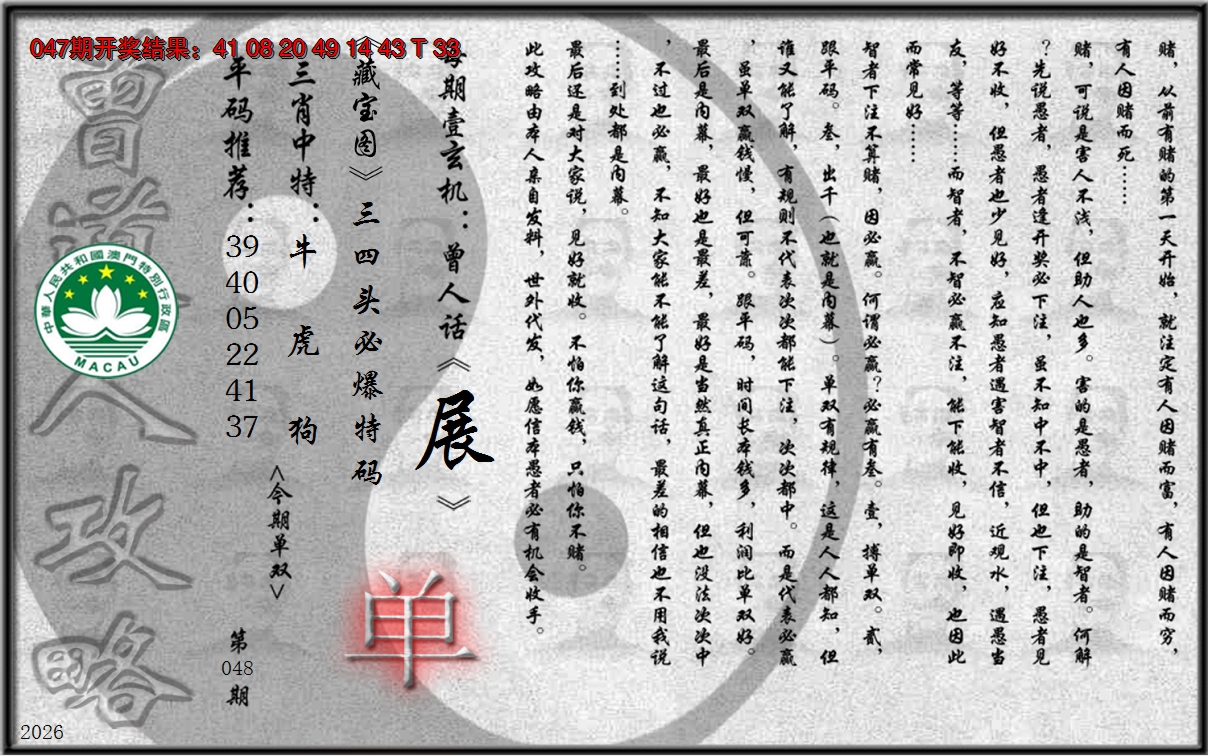 047期开奖结果：41 08 20 49 14 43 T 33
赌，从前有赌的第一天开始，就注定有人因赌而富，有人因赌而穷，
有人因赌而死……
赌，可说是害人不浅，但助人也多。害的是愚者，助的是智者。何解
？先说愚者，愚者逢开奖必下注，虽不知中不中，但也下注，愚者见
好不收，但愚者也少见好，应知愚者遇害智者不信，近观水，遇愚当
友，等等……而智者，不智必赢不注，能下能收，见好即收，也因此
而常见好……
智者下注不算赌，因必赢。何谓必赢？必赢有叁。壹，搏单双。贰，
跟平码。叁，出千（也就是内幕）。单双有规律，这是人人都知，但
谁又能了解，有规则不代表次次都能下注，次次都中。而是代表必赢
，虽单双赢钱慢，但可靠。跟平码，时间长本钱多，利润比单双好。
最后是内幕，最好也是最差，最好是当然真正内幕，但也没法次次中
，不过也必赢，不知大家能不能了解这句话，最差的相信也不用我说
……到处都是内幕。
最后还是对大家说，见好就收。不怕你赢钱，只怕你不赌。
此攻略由本人亲自发料，世外代发，如愿信本愚者必有机会收手。
每期壹玄机：曾人话《展》
《藏宝图》三四头必爆特码
三肖中特：牛 虎 狗
平码推荐：39 40 05 22 41 37
<今期单双>
单
第048期
曾道人攻略
中華人民共和國澳門特別行政區
MACAU
2026